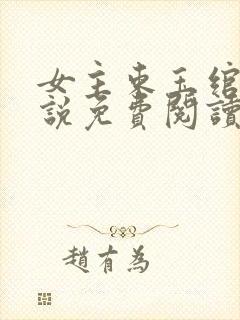 女主東玉綰
說免費閱讀
趙有為